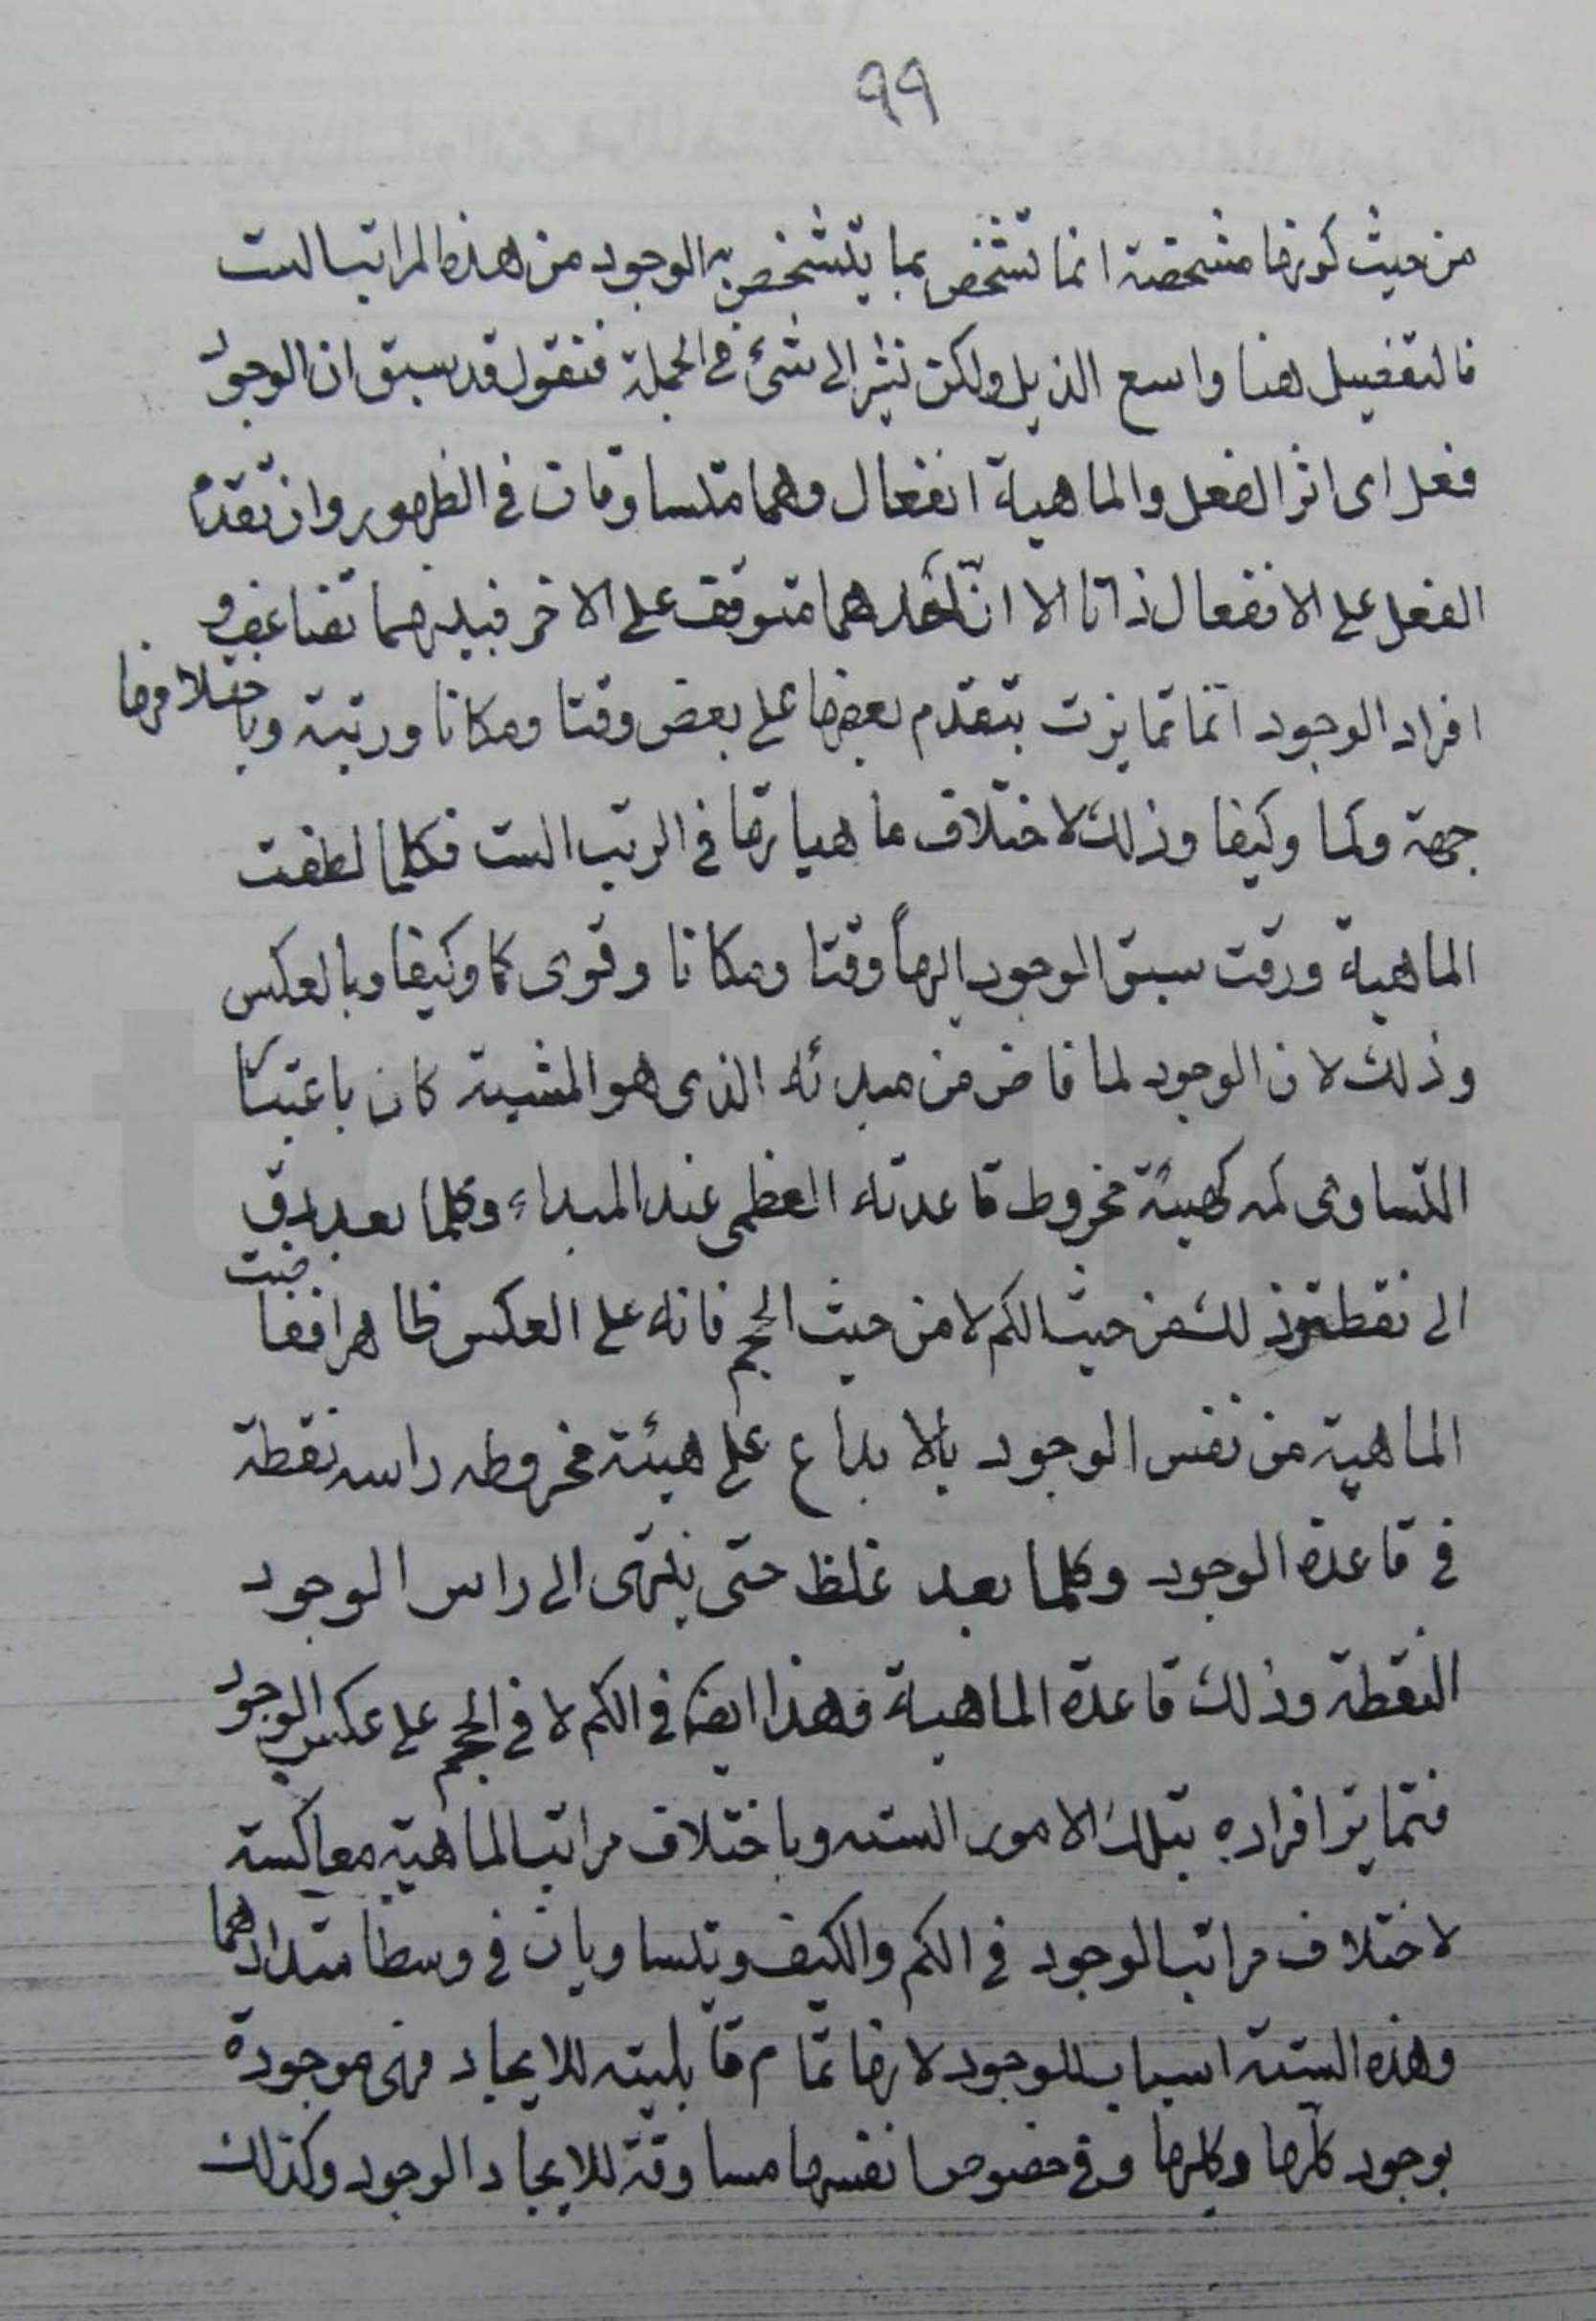 ٩٩
من حيث كونها مشخصة انما تشخص بما يتشخص به الوجود من هذه المراتب الست
فالتفصيل هنا واسع الذيل ولكن نشير الى شئ في الجملة فنقول قد سبق ان الوجود
فعل اى اثر الفعل والماهية انفعال وهما متساوقان في الظهور وان تقدم
الفعل على الانفعال ذاتا الا ان احدهما متوقف على الاخر فبينهما تضايف و
افراد الوجود انما تمايزت بتقدم بعضها على بعض وقتا ومكانا ورتبة وباختلافها
جهة وكما وكيفا وذلك لاختلاف ماهياتها في الرتب الست فكلما لطفت
الماهية ورقت سبق الوجود اليها وقتا ومكانا وقوى كما وكيفا وبالعكس
وذلك لان الوجود لما فاض من مبدئه الذى هو المشية كان باعتبار
التساوى له كهيئة مخروط قاعدته العظمى عند المبداء وكلما بعد دق
الى نقطة وذلك من حيث الكم لا من حيث الحجم فانه على العكس ظاهرا ففاضت
الماهية من نفس الوجود بالابداع على هيئة مخروطه راسه نقطة
في قاعدة الوجود وكلما بعد غلظ حتى ينتهى الى راس الوجود
النقطة وذلك قاعدة الماهية وهذا ايضا في الكم لا في الحجم على عكس الوجود
فتمايز افراده بتلك الامور الستة وباختلاف مراتب الماهية معاكسة
لاختلاف مراتب الوجود في الكم والكيف ويتساويان في وسط امتدادهما
وهذه الستة اسباب للوجود لانها تمام قابليته للايجاد فهى موجودة
بوجود كلها وكلها وفي خصوص انفسها مساوقة للايجاد الوجود وكذلك